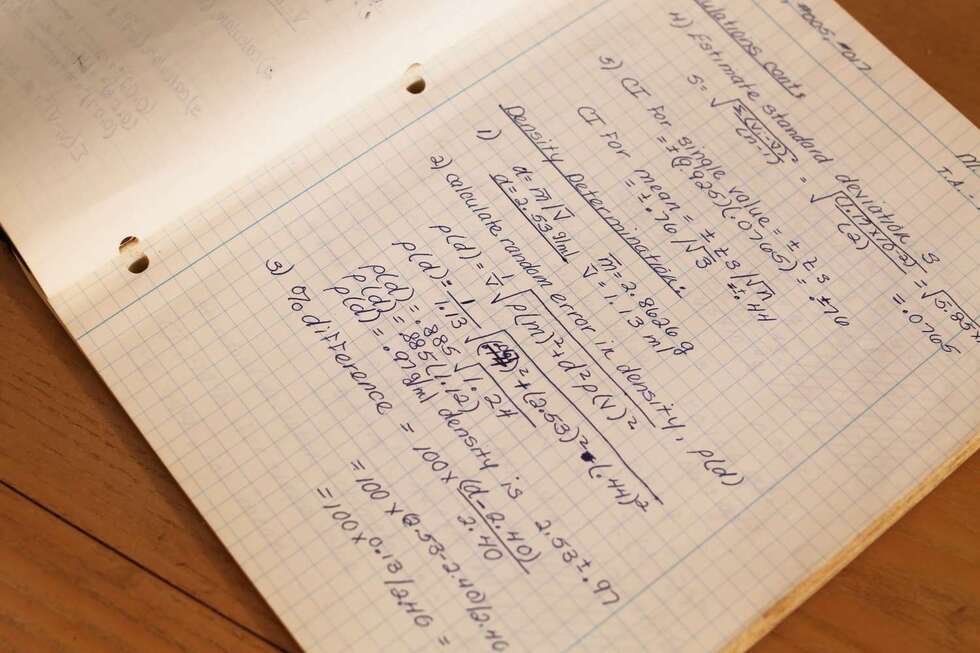 #005, #017
T.A.
ulations cont's
4) Estimate standard deviation s
s = √(Σ(Vᵢ-V̄)²/(n-1)) = √((1.17×10⁻²)/(2)) = √5.85×
= .0765
5) CI for single value = ± ts
= ± (9.925)(.0765) = ±.76
CI for mean = ± ts/√n
= ±.76/√3 = ±.44
Density Determination:
1) d = m̄/V̄ m̄ = 2.8626 g
d = 2.53 g/ml V̄ = 1.13 ml
2) calculate random error in density, ρ(d)
ρ(d) = 1/V̄ √(ρ(m)² + d²ρ(V)²
ρ(d) = 1/1.13 √( )² + (2.53)² • (.44)²
ρ(d) = .885 √1.24
ρ(d) = .885(1.12)
ρ(d) = .97 g/ml density is 2.53 ± .97
3) % difference = 100 × (d - 2.40)/2.40
= 100 × (2.53-2.40)/2.40
= 100 × 0.13/2.40 =